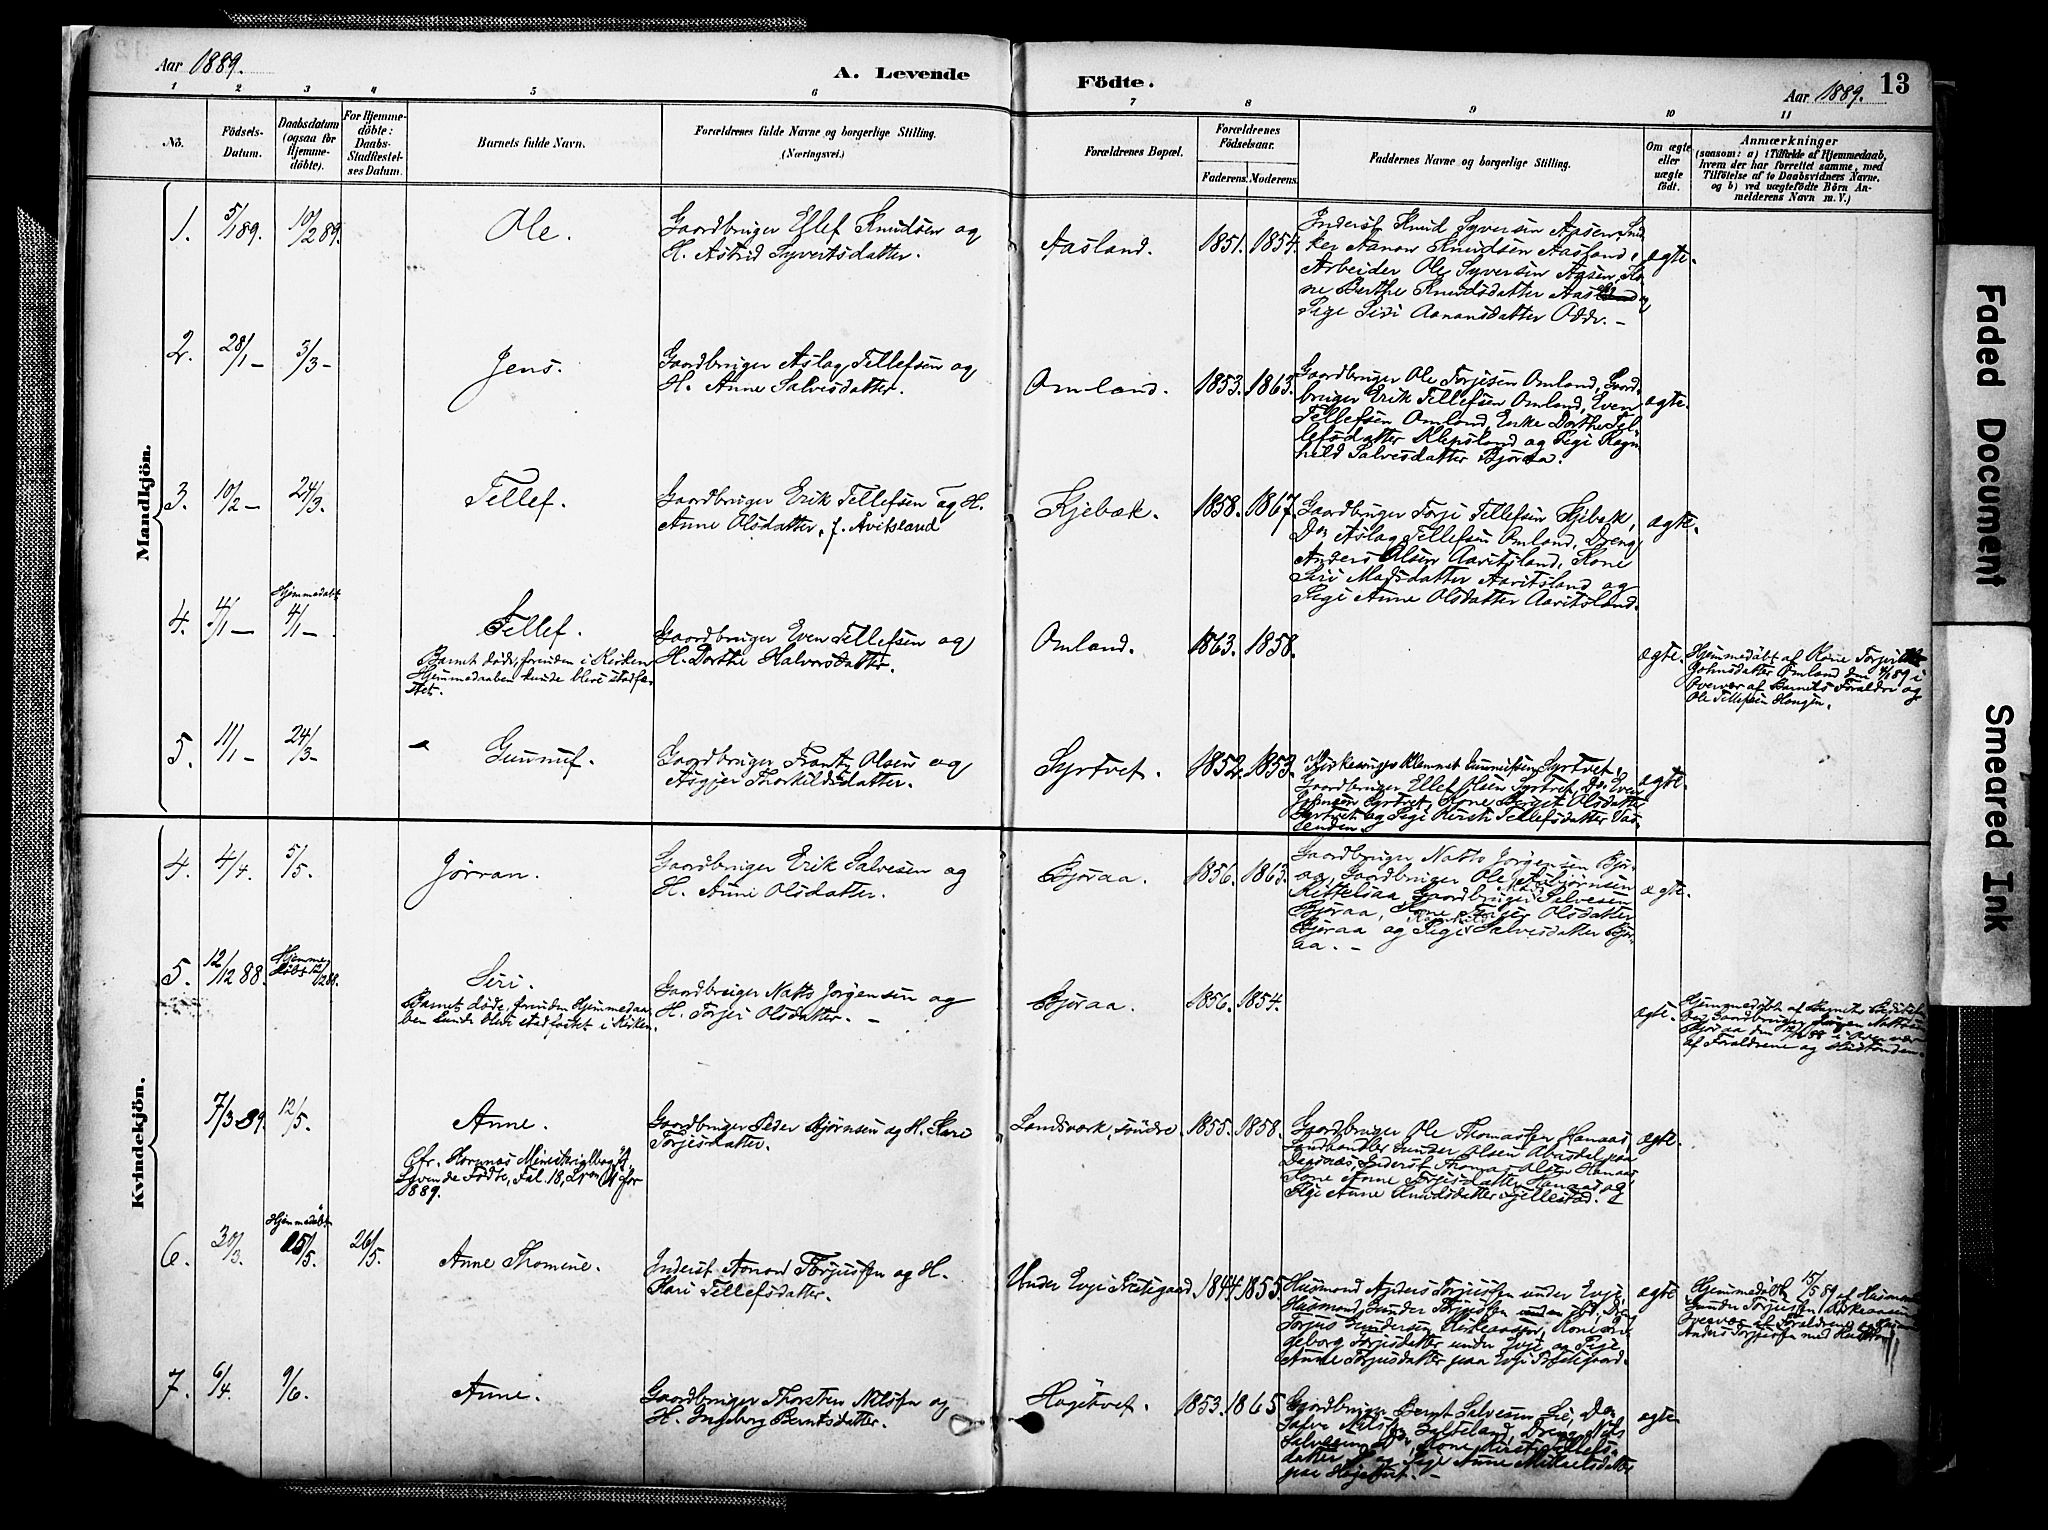 Aar 1889.
A. Levende Födte.
Aar 1889. 13
1 2 3 4 5 6 7 8 9 10 11
No.
Födsels-Datum.
Daabsdatum (ogsaa for Hjemmedöbte).
For Hjemmedöbte: Daabs-Stadfæstelses Datum.
Barnets fulde Navn.
Forældrenes fulde Navne og borgerlige Stilling. (Næringsvei.)
Forældrenes Bopæl.
Forældrenes Födselsaar.
Faderens. Moderens.
Faddernes Navne og borgerlige Stilling.
Om ægte eller uægte födt.
Anmærkninger
(saasom: a) i Tilfælde af Hjemmedaab, hvem der har forrettet samme, med Tilföielse af to Daabsvidners Navne. og b) ved uægtefödte Börn Anmelderens Navn m.V.)
Mandkjön.
1. 5/1 89. 10/2 89. Ole.
Gaardbruger Ellef Knudsen og
H. Astrid Syvertsdatter.
Aasland. 1851. 1854.
Inderst Knud Syversen
Aanon Knudsen Aasland,
Arbeider Ole Syversen
Berthe Knudsdatter
Pige Siri Aanonsdatter
ægte.
2. 28/1 – 3/3 – Jens.
Gaardbruger Aslag Tellefsen og
H. Anne Salvesdatter.
Omland. 1853. 1863.
Gaardbruger Ole Torjesen Omland, Gaard-
bruger Erik Tellefsen Omland, Even
Tellefsen Omland, Enke Dorthe Tel-
lefsdatter Klepsland og Pige Ragn-
hild Salvesdatter Bjøraa.
ægte.
3. 10/2 – 24/3. Tellef.
Gaardbruger Erik Tellefsen og H.
Anne Olsdatter, f. Avitsland
Kjebæk. 1858. 1867.
Gaardbruger Torje Tellefsen Kjebæk,
Do Aslag Tellefsen Omland, Dreng
Anders Olsen Aavitsland, Kone
Siri Madsdatter Aavitsland og
Pige Anne Olsdatter Aavitsland.
ægte.
4. 4/1 – Hjemmedøbt 4/1 – Tellef.
Barnet døde, forinden i Kirken
Hjemmedaaben kunde blive stadfæ-
stet.
Gaardbruger Even Tellefsen og
H. Dorthe Halvorsdatter.
Omland. 1863. 1858.
ægte.
Hjemmedøbt af Kone Torjer
Omland den 4/1 89 i
Overvær af Barnets Forældre og
Ole Tellefsen Haugen.
5. 11/1 – 24/3 – Gunnuf.
Gaardbruger Frantz Olsen og
Asgjer Thorkildsdatter.
Syrtvet. 1852. 1853.
Kirkesanger Klemmet Gunnufsen Syrtvet,
Gaardbruger Ellef Olsen Syrtvet, Do Even
Johnsen Syrtvet, Kone Berget Olsdatter
Syrtvet og Pige Kirsti Tellefsdatter
ægte.
Kvindekjön.
4. 4/4. 5/5. Jørran.
Gaardbruger Erik Salvesen og
H. Anne Olsdatter.
Bjøraa. 1856. 1863.
Gaardbruger Natto Jørgensen Bjør-
aa, Gaardbruger Ole Asbjørnsen
Kittelsaa, Gaardbruger Salvesen
Bjøraa, Kone Torjer Olsdatter
Bjøraa og Pige Salvesdatter Bjør-
aa. –
ægte.
5. 12/12 88. Hjemmedøbt 12/12 88. Siri.
Barnet døde, forinden Hjemmedaa-
ben kunde blive stadfæstet i Kirken.
Gaardbruger Natto Jørgensen og
H. Torjer Olsdatter. –
Bjøraa. 1856. 1854.
ægte.
Hjemmedøbt af Barnets
Gaardbruger Jørgen Nattosen
Bjøraa den 12/12 88 i Overvær
af Forældrene og
7/3 89. 12/5. Anne.
Cfr. Hornnæs Ministerialbog A
Levende Fødte, Fol. 18, for
1889.
Gaardbruger Peder Bjørnsen og H. Kari
Torjesdatter.
Landsværk, søndre. 1855. 1858.
Gaardbruger Ole Thomassen Hanaas,
Landhandler Gunder Olsen Abustel paa
Dagsnæs, Inderst Thomas Olsen Hanaas,
Kone Anne Torjesdatter Hanaas og
Pige Anne Knudsdatter Fjellestad.
ægte.
6. 30/3. Hjemmedøbt 15/5. 26/5. Anne Thomine.
Inderst Aanon Torjussen og H.
Kari Tellefsdatter.
Under Evje Præstegaard. 1844. 1855.
Husmand Anders Torjussen under Evje,
Husmand Gunder Torjussen
Torjus Gundersen Kirkeaasen, Kone In-
geborg Torjusdatter under Evje og Pige
Anne Torjusdatter paa Evje Præstegaard.
ægte
Hjemmedøbt 15/5 89 af Husmand
Gunder Torjussen Kirkeaasen i
Overvær af Forældrene og
Anders Torjussen med Hustru
7. 6/4. 9/6. Anne.
Gaardbruger Thorsten Nilssen og
H. Ingeborg Berntsdatter.
Høgetveit. 1853. 1865.
Gaardbruger Bernt Salvesen Lie, Do
Salve Nilssen Dreng Nils
Salvesen Kone Kirsti Tellefs-
datter og Pige Anne Mikkelsdatter
paa Høgetveit. –
ægte
Faded Document
Smeared Ink